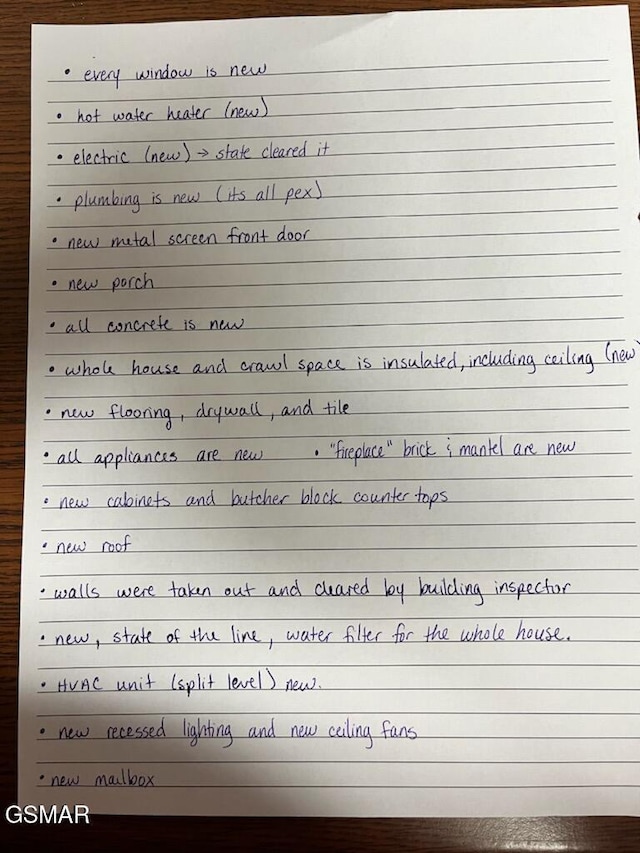 • every window is new
• hot water heater (new)
• electric (new) → state cleared it
• plumbing is new (its all pex)
• new metal screen front door
• new porch
• all concrete is new
• whole house and crawl space is insulated, including ceiling (new)
• new flooring, drywall, and tile
• all appliances are new • "fireplace" brick & mantel are new
• new cabinets and butcher block counter tops
• new roof
• walls were taken out and cleared by building inspector
• new, state of the line, water filter for the whole house.
• HVAC unit (split level) new.
• new recessed lighting and new ceiling fans
• new mailbox
GSMAR